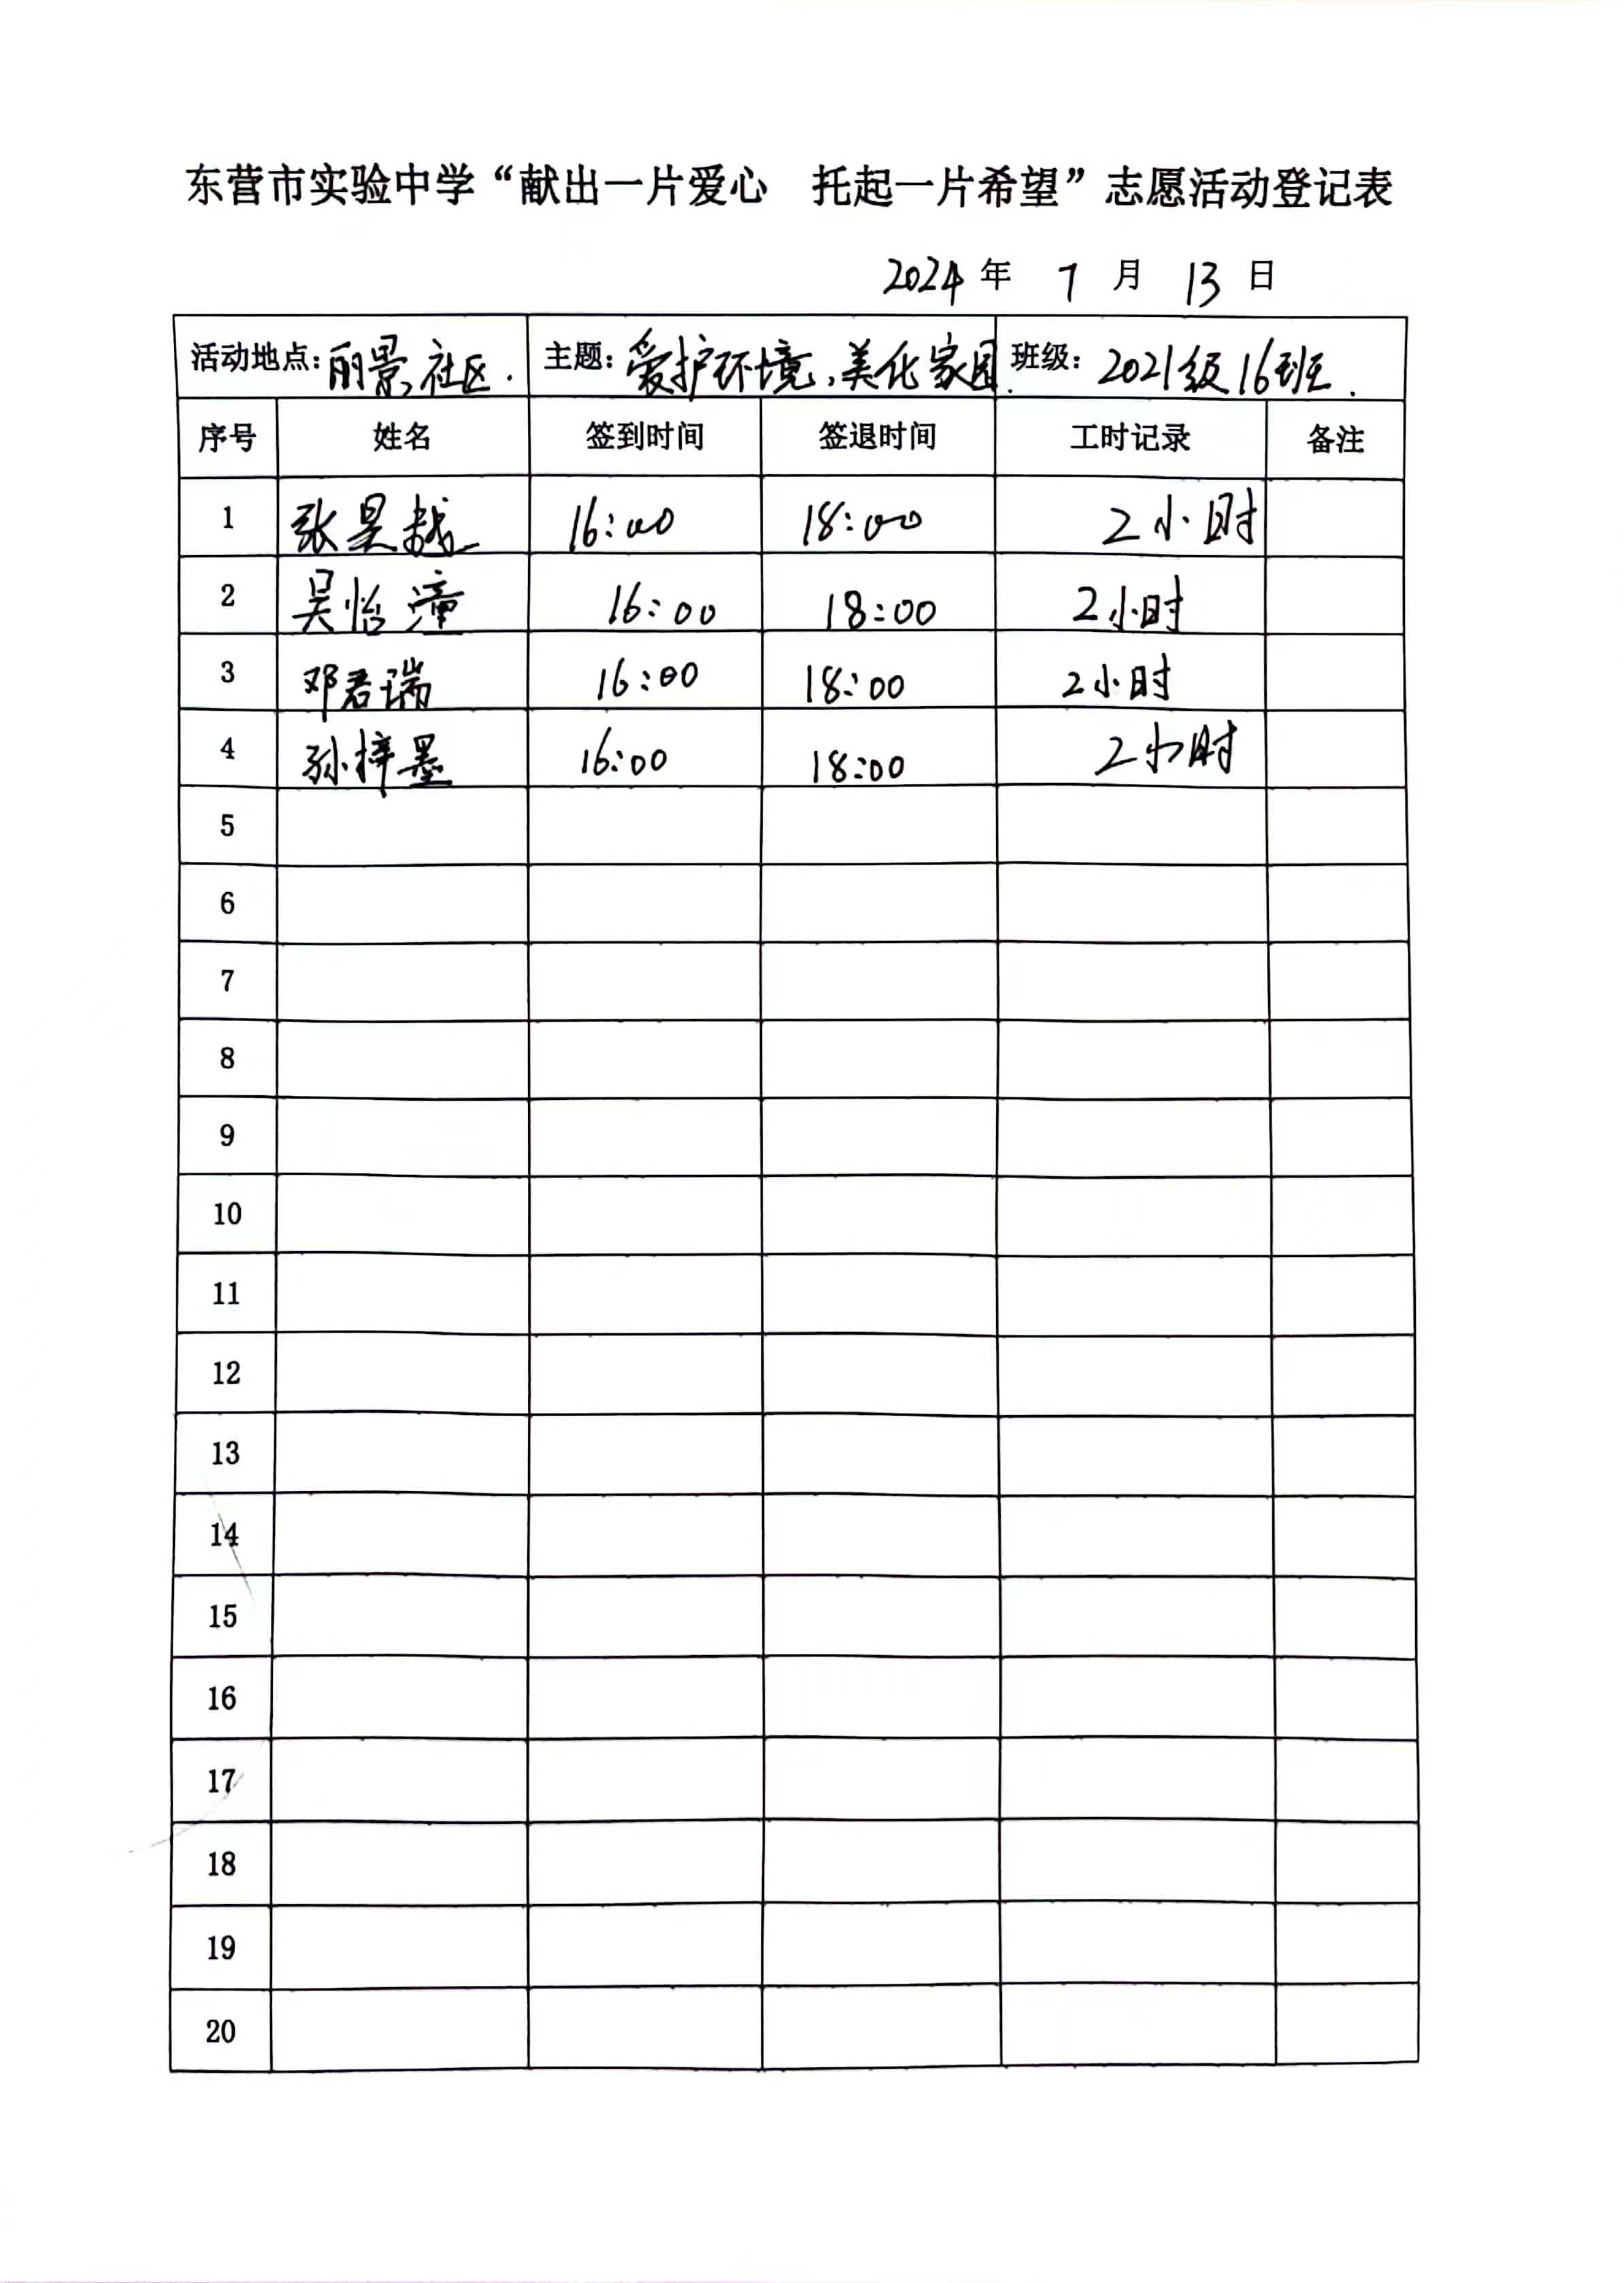 东营市实验中学“献出一片爱心 托起一片希望”志愿活动登记表
2024 年 7 月 13 日
活动地点:丽景社区. 主题:爱护环境,美化家园. 班级:2021级16班.
序号 姓名 签到时间 签退时间 工时记录 备注
1 张昊越 16:00 18:00 2小时
2 吴怡潼 16:00 18:00 2小时
3 邓君瑞 16:00 18:00 2小时
4 孙梓墨 16:00 18:00 2小时
5
6
7
8
9
10
11
12
13
14
15
16
17
18
19
20